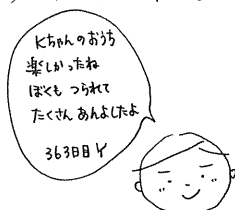 Kちゃんのおうち
楽しかったね
ぼくも つられて
たくさん あんよしたよ
363日目